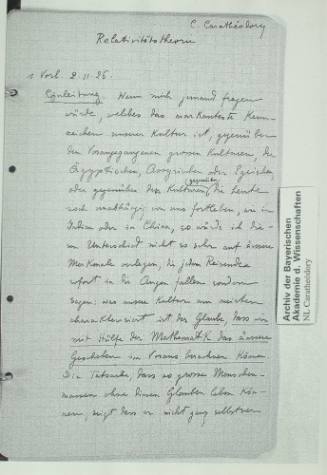 C. Carathéodory
Relativitätstheorie
1 Vorl. 2.11.25.
Einleitung. Wenn mich jemand fragen
würde, welches das markanteste Kenn-
zeichen unserer Kultur ist, gegenüber
den vorangegangenen grossen Kulturen, der
Ägyptischen, Assyrischen oder
oder gegenüber den Kulturen, die heute
noch unabhängig von uns fortleben, wie in
Indien oder in China, so würde ich die-
sen Unterschied nicht so sehr auf äussere
Merkmale verlegen, die jedem Reisenden
sofort in die Augen fallen sondern
sagen: was unsere Kultur am meisten
charakterisiert ist der Glaube, dass wir
mit Hülfe der Mathematik das äussere
Geschehen im Voraus berechnen können.
Die Tatsache, dass so grosse Menschen-
massen ohne diesen Glauben leben kön-
nen, zeigt dass er nicht ganz selbstver-
Archiv der Bayerischen
Akademie d. Wissenschaften
NL Caratheodory